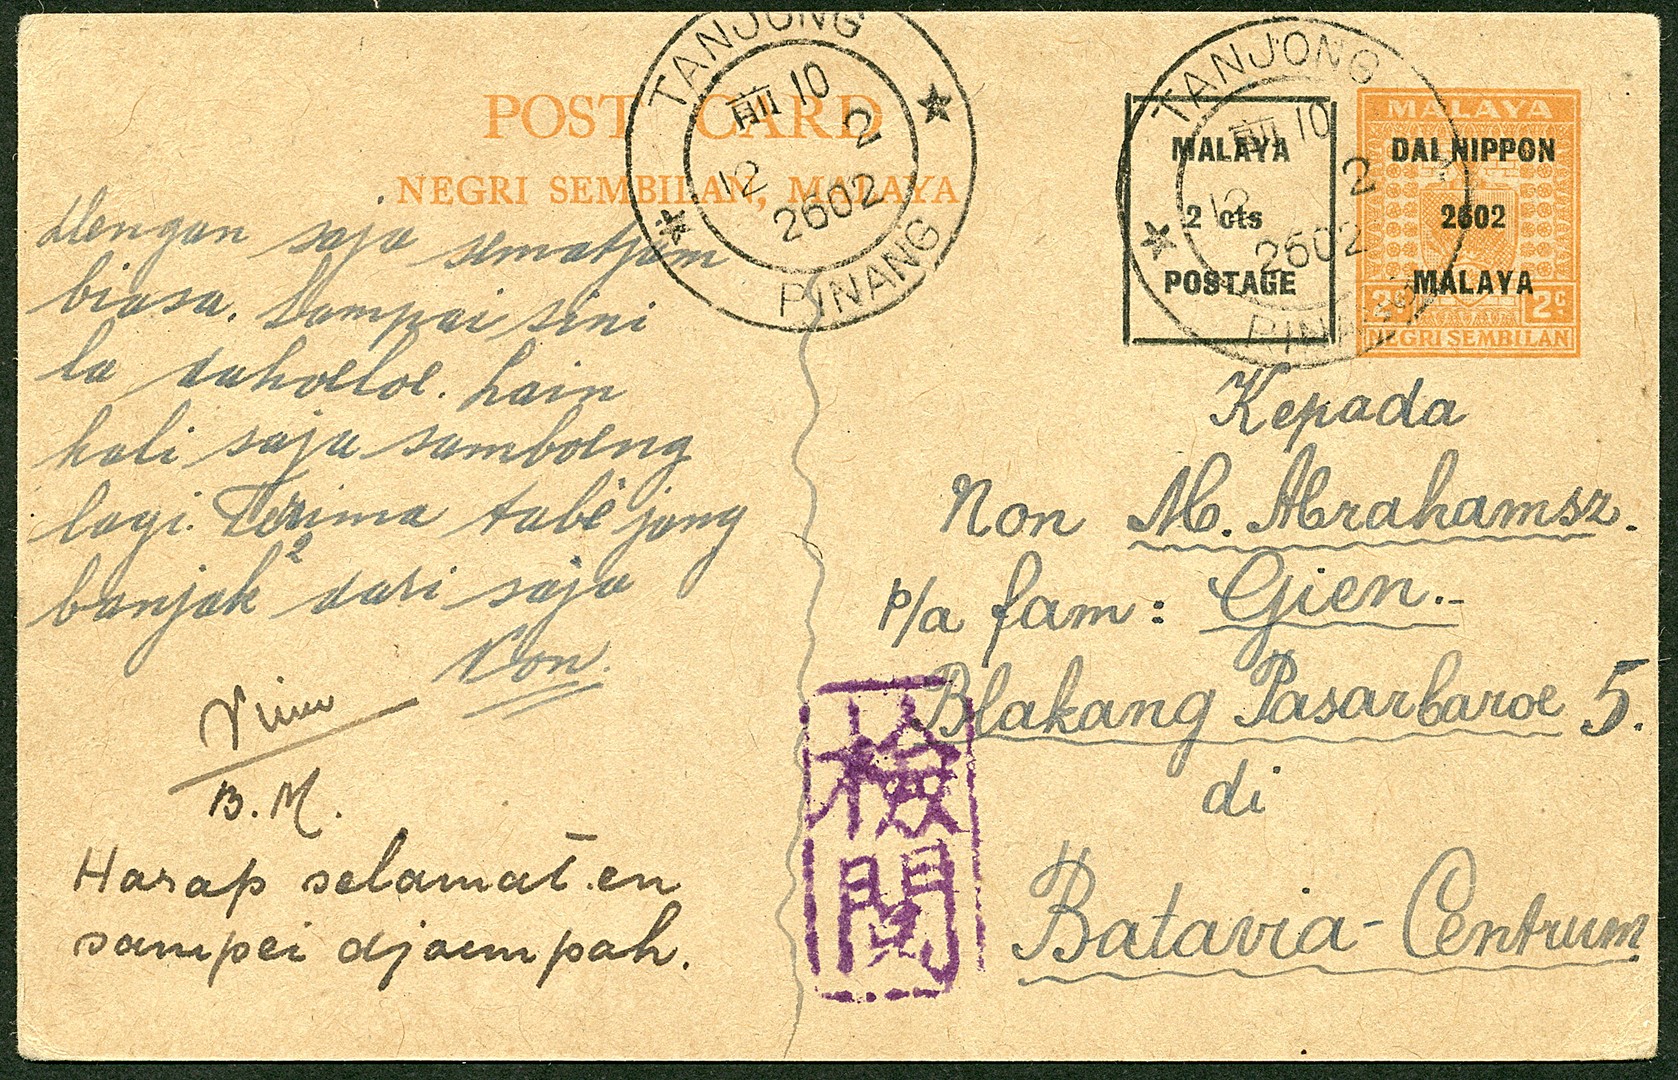 POST CARD
NEGRI SEMBILAN, MALAYA
TANJONG
前 10
12 2
2602
PINANG
MALAYA
2 cts
POSTAGE
TANJONG
前 10
12 2
2602
PINANG
MALAYA
DAI NIPPON
2602
MALAYA
2c 2c
NEGRI SEMBILAN
dengan saja sematjam
biasa. Sampai sini
la dahoeloe. Lain
kali saja samboeng
lagi. Terima tabé jang
banjak² dari saja
Non.
B.M.
Harap selamat en
sampei djoempah.
Kepada
Non M. Abrahamsz.
p/a fam: Gien.-
Blakang Pasarbaroe 5.
di
Batavia-Centrum
検閲